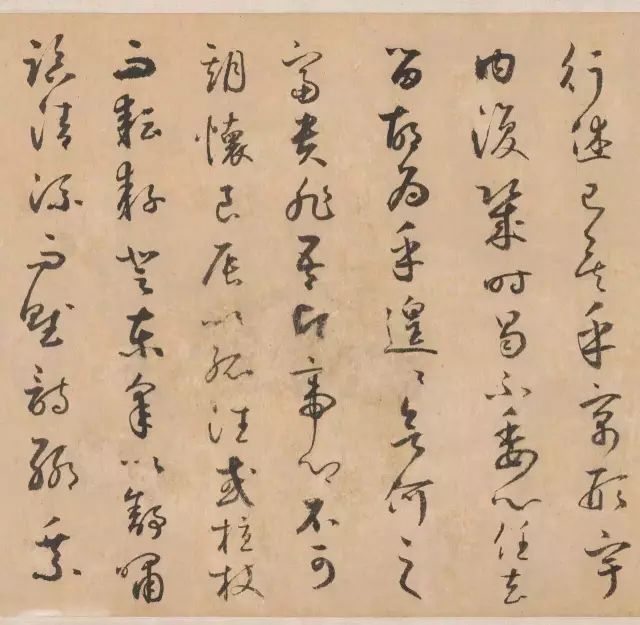 行休已矣乎寓形宇
内復幾時曷不委心任去
留胡為乎遑〻欲何之
富貴非吾願帝鄉不可
期懷良辰以孤往或植杖
而耘耔登東皋以舒嘯
臨清流而賦詩聊乘